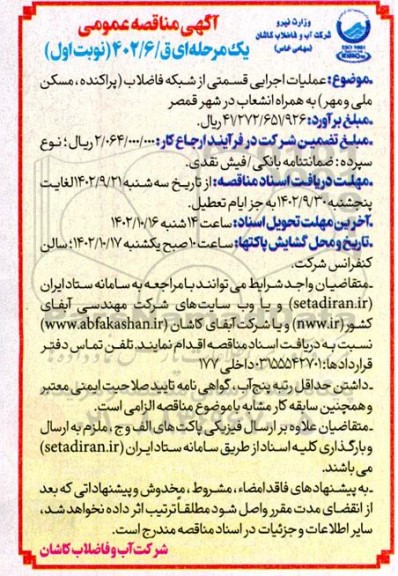 وزارت نیرو
شرکت آب و فاضلاب کاشان
(سهامی خاص)
آگهی مناقصه عمومی
یک مرحله‌ای ق/۴۰۲/۶ (نوبت اول)
.موضوع: عملیات اجرایی قسمتی از شبکه فاضلاب (پراکنده، مسکن
ملی و مهر) به همراه انشعاب در شهر قمصر
.مبلغ برآورد: ۴۱/۲۷۲/۶۵۱/۹۲۶ ریال.
.مبلغ تضمین شرکت در فرآیند ارجاع کار: ۲/۰۶۴/۰۰۰/۰۰۰ ریال؛ نوع
سپرده: ضمانتنامه بانکی / فیش نقدی.
.مهلت دریافت اسناد مناقصه: از تاریخ سه شنبه ۱۴۰۲/۹/۲۱ لغایت
پنجشنبه ۱۴۰۲/۹/۳۰ به جز ایام تعطیل.
.آخرین مهلت تحویل اسناد: ساعت ۱۴ شنبه ۱۴۰۲/۱۰/۱۶
.تاریخ و محل گشایش پاکتها: ساعت ۱۰ صبح یکشنبه ۱۴۰۲/۱۰/۱۷؛ سالن
کنفرانس شرکت.
-متقاضیان واجد شرایط می توانند با مراجعه به سامانه ستاد ایران
(setadiran.ir) و یا وب سایت‌های شرکت مهندسی آبفای
کشور (nww.ir) و یا شرکت آبفای کاشان (www.abfakashan.ir)
نسبت به دریافت اسناد مناقصه اقدام نمایند. تلفن تماس دفتر
قراردادها: ۰۳۱۵۵۵۴۲۷۰۱ داخلی ۱۷۷
-داشتن حداقل رتبه پنج آب، گواهی نامه تایید صلاحیت ایمنی معتبر
و همچنین سابقه کار مشابه با موضوع مناقصه الزامی است.
-متقاضیان علاوه بر ارسال فیزیکی پاکت های الف و ج، ملزم به ارسال
و بارگذاری کلیه اسناد از طریق سامانه ستاد ایران (setadiran.ir)
می باشند.
-به پیشنهادهای فاقد امضاء، مشروط، مخدوش و پیشنهاداتی که بعد
از انقضای مدت مقرر واصل شود مطلقاً ترتیب اثر داده نخواهد شد،
سایر اطلاعات و جزئیات در اسناد مناقصه مندرج است.
شرکت آب و فاضلاب کاشان